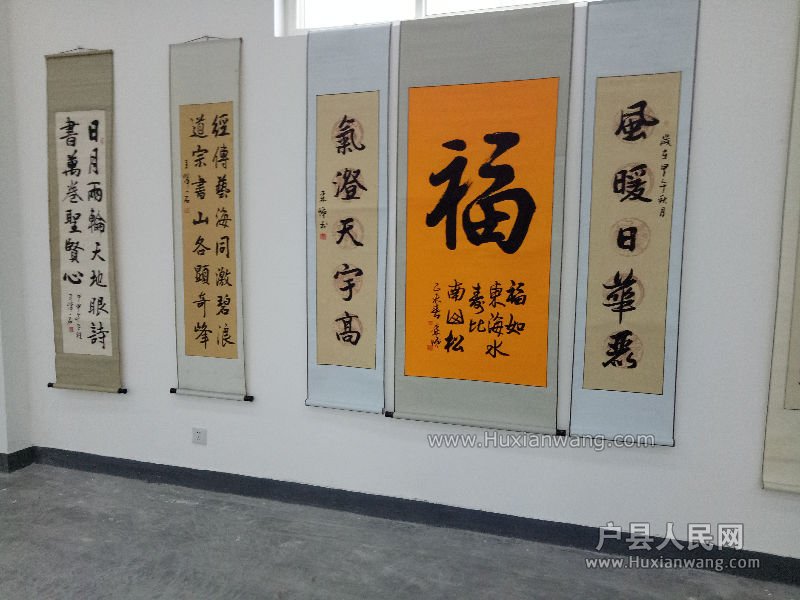 日月兩輪天地眼詩
書萬卷聖賢心
經傳藝海同激碧浪
道宗書山各顯奇峰
氣澄天宇高
福
福如
東海水
壽比
南山松
乙未春
風暖日華麗
歲在甲午秋月
www.Huxianwang.com
户县人民网
www.Huxianwang.com